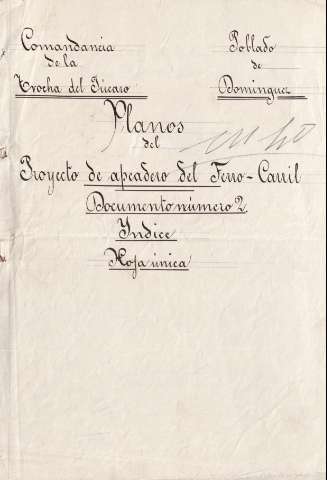 Comandancia
de la
Trocha del Júcaro
Poblado
de
Dominguez
Planos
del
Proyecto de apeadero del Ferro-Carril
Documento número 2.
Yndice
Hoja única